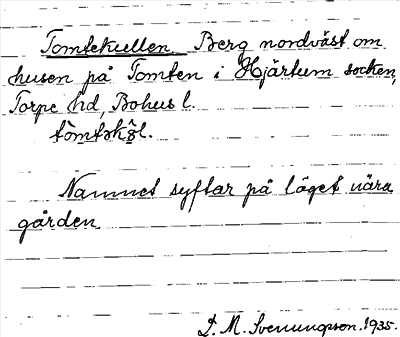 Tomtekullen Berg nordväst om
husen på Tomten i Hjärtum socken,
Torpe hd, Bohus l.
Namnet syftar på läget nära
gården
D. M. Svenungsson. 1935.